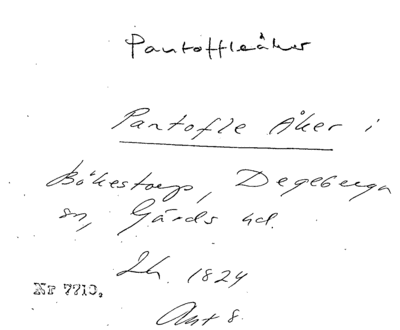 Pantoffleåker
Pantofle Åker i
Bökestorp, Degeberga
sn, Gärds hd.
Lh. 1824
Nr 7710,
Akt 8.